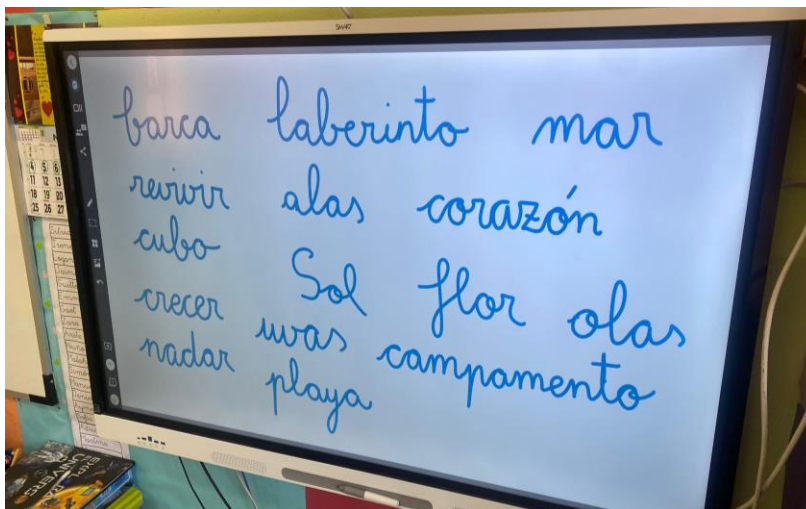 SMART
barca laberinto mar
revivir alas corazón
cubo Sol flor olas
crecer uvas campamento
nadar playa
4 5 6
11 12 13
18 19 20
25 26 27
UNIVERS